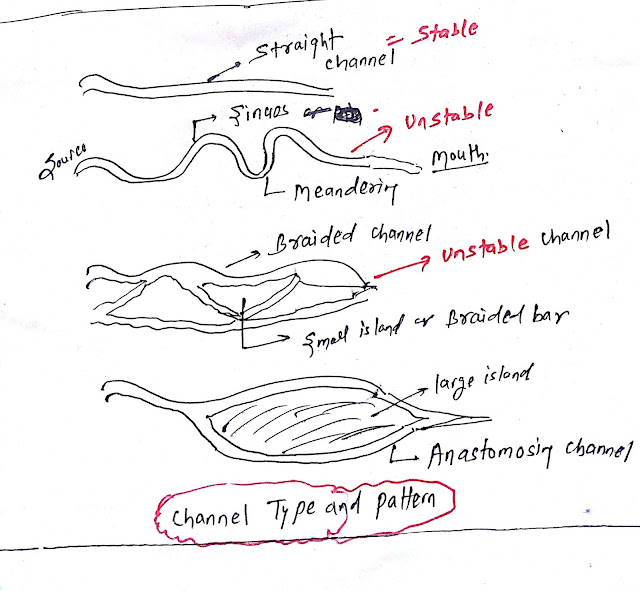 Straight = Stable
channel
Sinuos or
Unstable
Source
Mouth:
Meanderin
Braided channel
Unstable channel
Small island or Braided bar
large island
Anastomosin channel
Channel Type and pattern